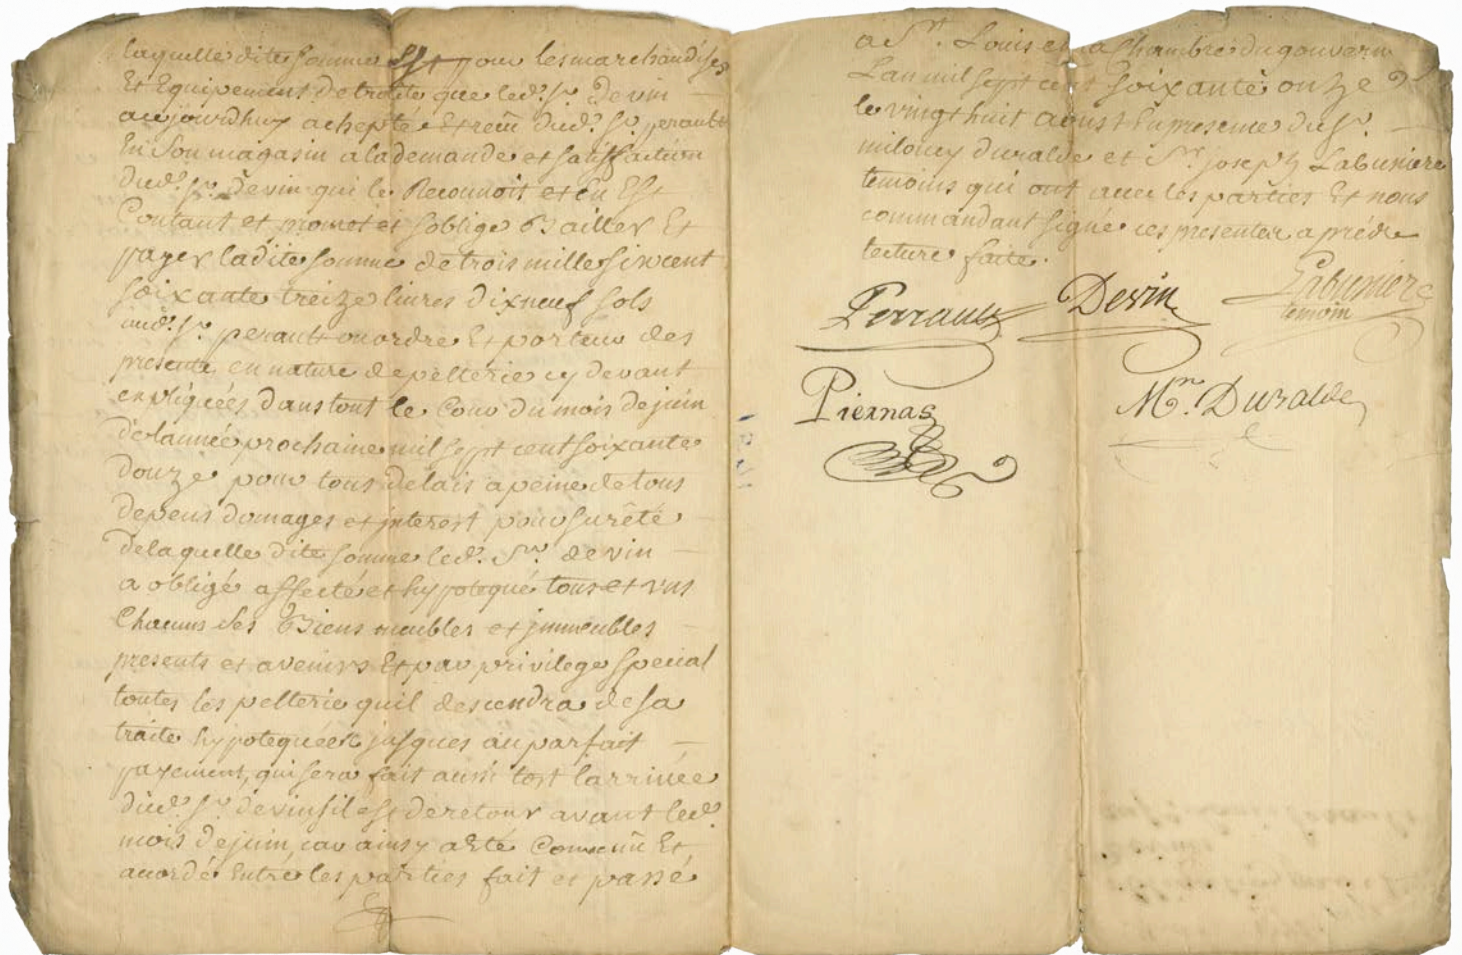 laquelle dite somme Est pour les marchandises
Et Equipement de traite que led.t S.r Devin
aujourdhuy achepté et recu dud.t S.r perault
En Son magasin a la demande et satisfaction
dud.t S.r Devin qui le Reconnoit et En Est
Contant et promet et soblige Bailler Et
payer ladite somme de trois mille six cent
soixante treize livres dixneuf sols
aud.t S.r perault ou ordre Et porteur des
presente en nature de pelterie cy devant
expliquéés dans tout le Cour du mois de juin
de lannéé prochaine mil sept cent soixante
Douze pour tous delais a peine de tous
depens domages et interest pour sureté
de laquelle dite somme led.t S.r devin
a obligé affecté et hypotequé tous et uns
Chacuns ses Biens meubles et immeubles
presents et avenirs Et par privilege special
toutes les pelterie quil descendra de sa
traite hypotequéés jusques au parfait
payement, qui sera fait aussi tost larrivéé
dud.t S.r devin sil est de retour avant led.t
mois de juin, car ainsy a Eté Convenu Et
acordé Entre les parties fait et passé
a S.t Louis en la Chambre du gouverm
Lan mil sept cent soixante onze
le vingt huit aoust En presence du S.r
duralde et S.r joseph Labusciere
temoins qui ont avec les parties Et nous
commandant signé ces presentes aprés
lecture faite.
Perrault Devin Labusciere
temoin
Piernas M.n Duralde